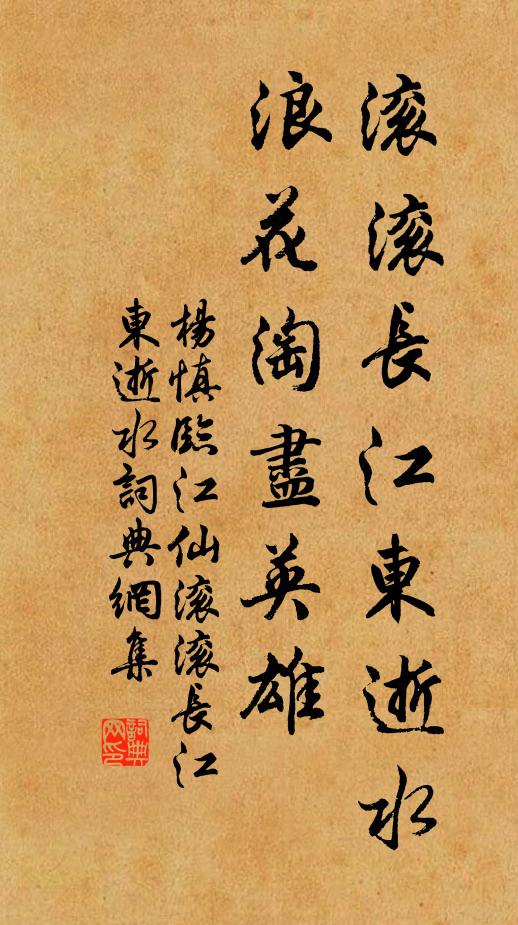 滚滚長江東逝水
浪花淘盡英雄
楊慎臨江仙滚滚長江
東逝水詞典網集
詞典
网印